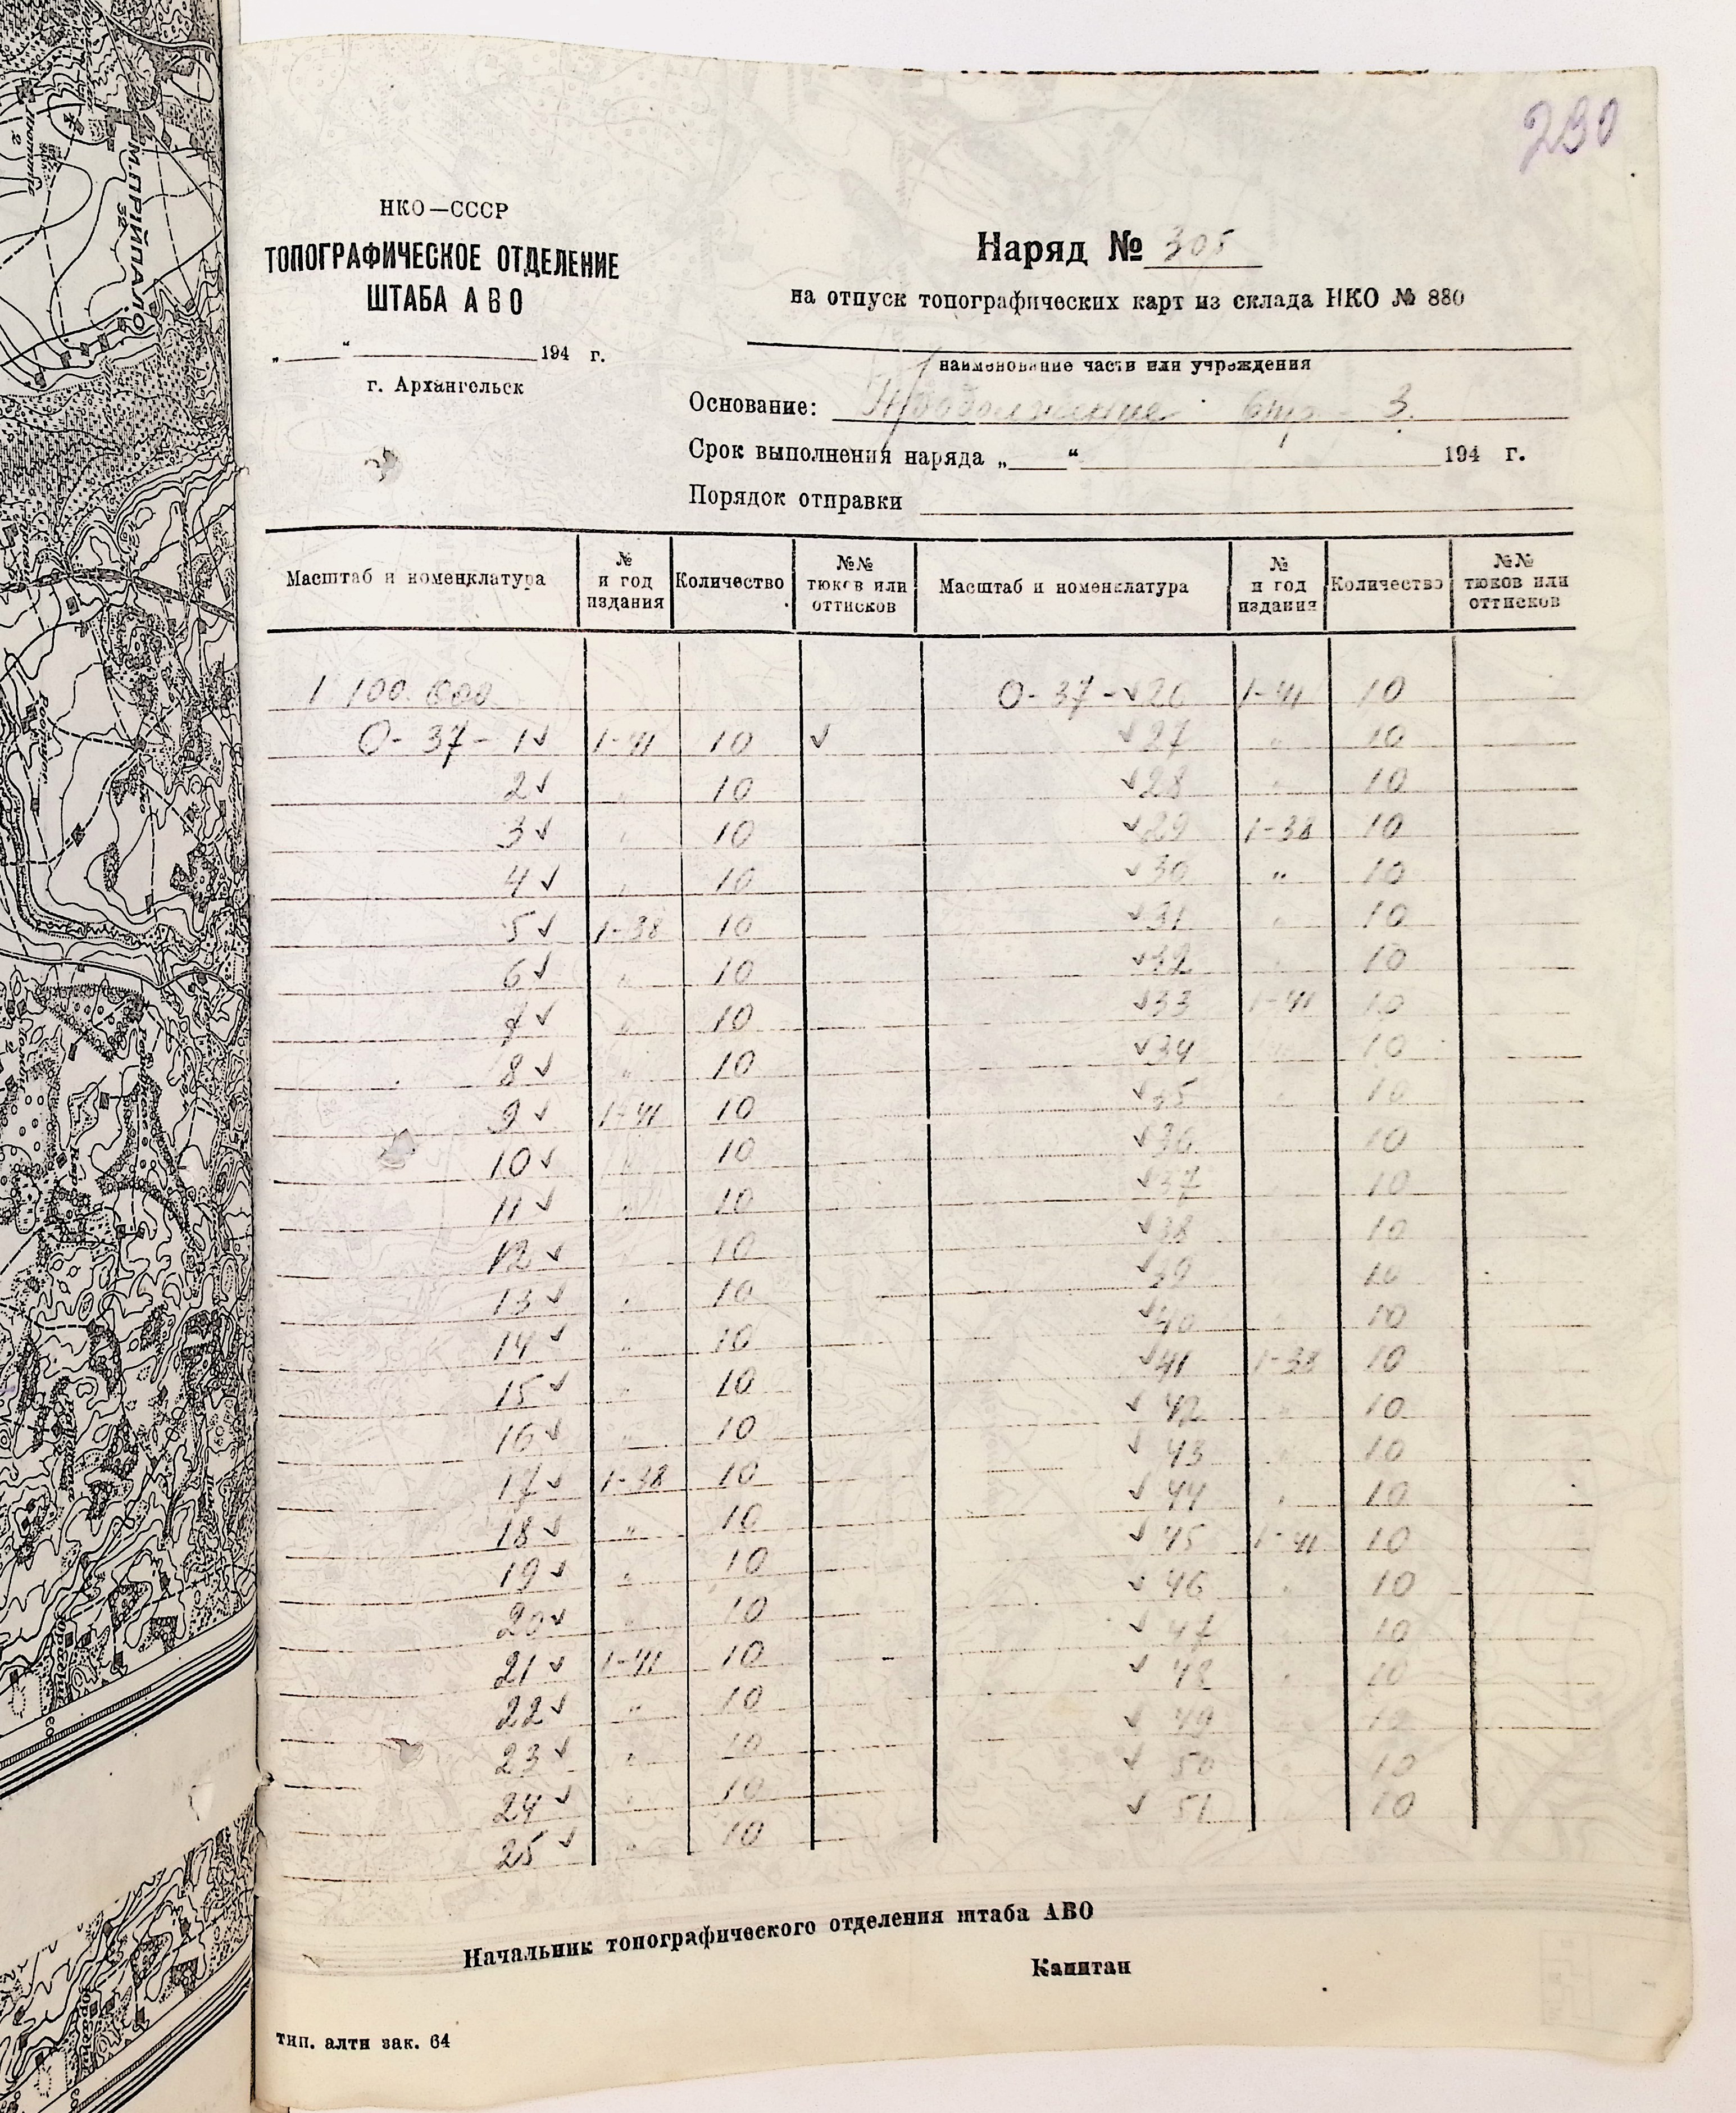 290
НКО—СССР
ТОПОГРАФИЧЕСКОЕ ОТДЕЛЕНИЕ
ШТАБА АВО
„ “ 194 г.
г. Архангельск
Наряд № 305
на отпуск топографических карт из склада НКО № 880
наименование части или учреждения
Основание: Продолжение Стр. - 3.
Срок выполнения наряда „ “ 194 г.
Порядок отправки
Масштаб и номенклатура № и год издания Количество №№ тюков или оттисков Масштаб и номенклатура № и год издания Количество №№ тюков или оттисков
1 100.000 О-37-√26 1-41 10
О-37-1√ 1-41 10 √ √27 " 10
2√ " 10 √28 " 10
3√ " 10 √29 1-38 10
4√ " 10 √30 " 10
5√ 1-38 10 √31 " 10
6√ " 10 √32 " 10
7√ " 10 √33 1-41 10
8√ " 10 √34 " 10
9√ 1-41 10 √35 " 10
10√ " 10 √36 10
11√ " 10 √37 " 10
12√ " 10 √38 " 10
13√ " 10 √39 10
14√ " 10 √40 " 10
15√ " 10 √41 1-38 10
16√ " 10 √42 " 10
17√ 1-38 10 √43 " 10
18√ " 10 √44 " 10
19√ " 10 √45 1-41 10
20√ " 10 √46 " 10
21√ 1-41 10 √47 " 10
22√ " 10 √48 " 10
23√ " 10 √49 " 10
24√ " 10 √50 10
25√ " 10 √51 10
Начальник топографического отделения штаба АВО
Капитан
тип. алти зак. 64